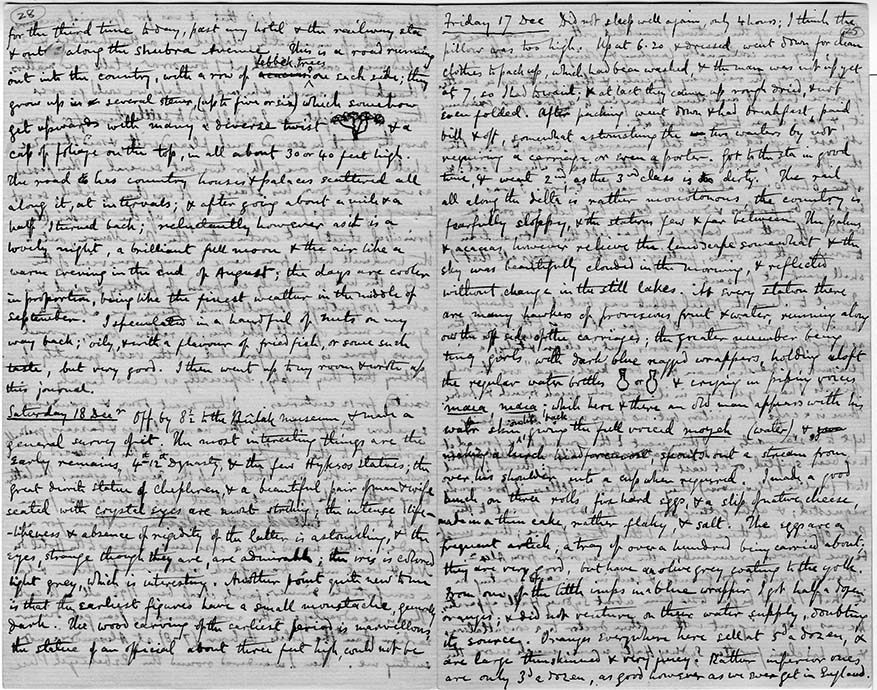 28
for the third time today, past my hotel & the railway sta
& out along the Shubra Avenue. This is a road running
out into the country, with a row of lebbek trees on each side; they
grow up in several stems (up to five or six) which somehow
get upwards with many a diverse twist & a
cap of foliage on the top, in all about 30 or 40 feet high.
The road has country houses & palaces scattered all
along it, at intervals; & after going about a mile & a
half I turned back; reluctantly however as it is a
lovely night, a brilliant full moon & the air like a
warm evening in the end of August; the days are cooler
in proportion, being like the finest weather in the middle of
September. I speculated in a handful of nuts on my
way back; oily, & with a flavour of fried fish, or some such
taste, but very good. I then went up to my room & wrote up
this journal.
Saturday 18 Decr Off by 8½ to the Bulak museum, & made a
general survey of it. The most interesting things are the
early remains, 4th 12th Dynasty, & the few Hyksos statues; the
great diorite statue of Chephren, & a beautiful pair of man & wife
seated with crystal eyes are most striking; the intense life-
-likeness & absence of rigidity of the latter is astonishing, & the
eyes, strange though they are, are admirable; the iris is colored
light grey, which is interesting. Another point quite new to me
is that the earliest figures have a small moustache, generally
dark. The wood carving of the earliest period is marvellous
the statue of an official about three feet high, could not be
25
Friday 17 Dec Did not sleep well again, only 4 hours; I think the
pillow was too high. Up at 6.20 & dressed, went down for clean
clothes to pack up, which had been washed, & the man was not up yet
at 7, so I had to wait; & at last they came up rough dried, & not
even folded. After packing went down & had breakfast, paid
bill & off, somewhat astonishing the waiters by not
requiring a carriage or even a porter. Got to the sta in good
time, & went 2nd, as the 3rd class is dirty. The rail
all along the delta is rather monotonous, the country is
fearfully sloppy, & the stations few & far between. The palms
& acacias however relieve the landscape somewhat & the
sky was beautifully clouded in the morning, & reflected
without change in the still lakes. At every station there
are many hawkers of provisions fruit & water, running along
on the off side of the carriages; the greater number being
tiny girls with dark blue ragged wrappers, holding aloft
the regular water bottles or & crying in piping voices
maia maia; while here & there an old man appears with his
water skin on his back giving the full voiced moyeh (water), &
spouts out a stream from
over his shoulder into a cup when required. I made a good
lunch on three rolls, five hard eggs, & a slip of native cheese,
made in a thin cake, rather flaky, & salt. The eggs are a
frequent article, a tray of over a hundred being carried about;
they are very good, but have an olive grey coating to the yolk.
From one of the little imps in a blue wrapper I got half a dozen
oranges; & did not venture on their water supply, doubting
its source. Oranges everywhere here sell at 5d a dozen, &
are large thin skinned & very juicy. Rather inferior ones
are only 3d a dozen, as good however as we ever get in England.